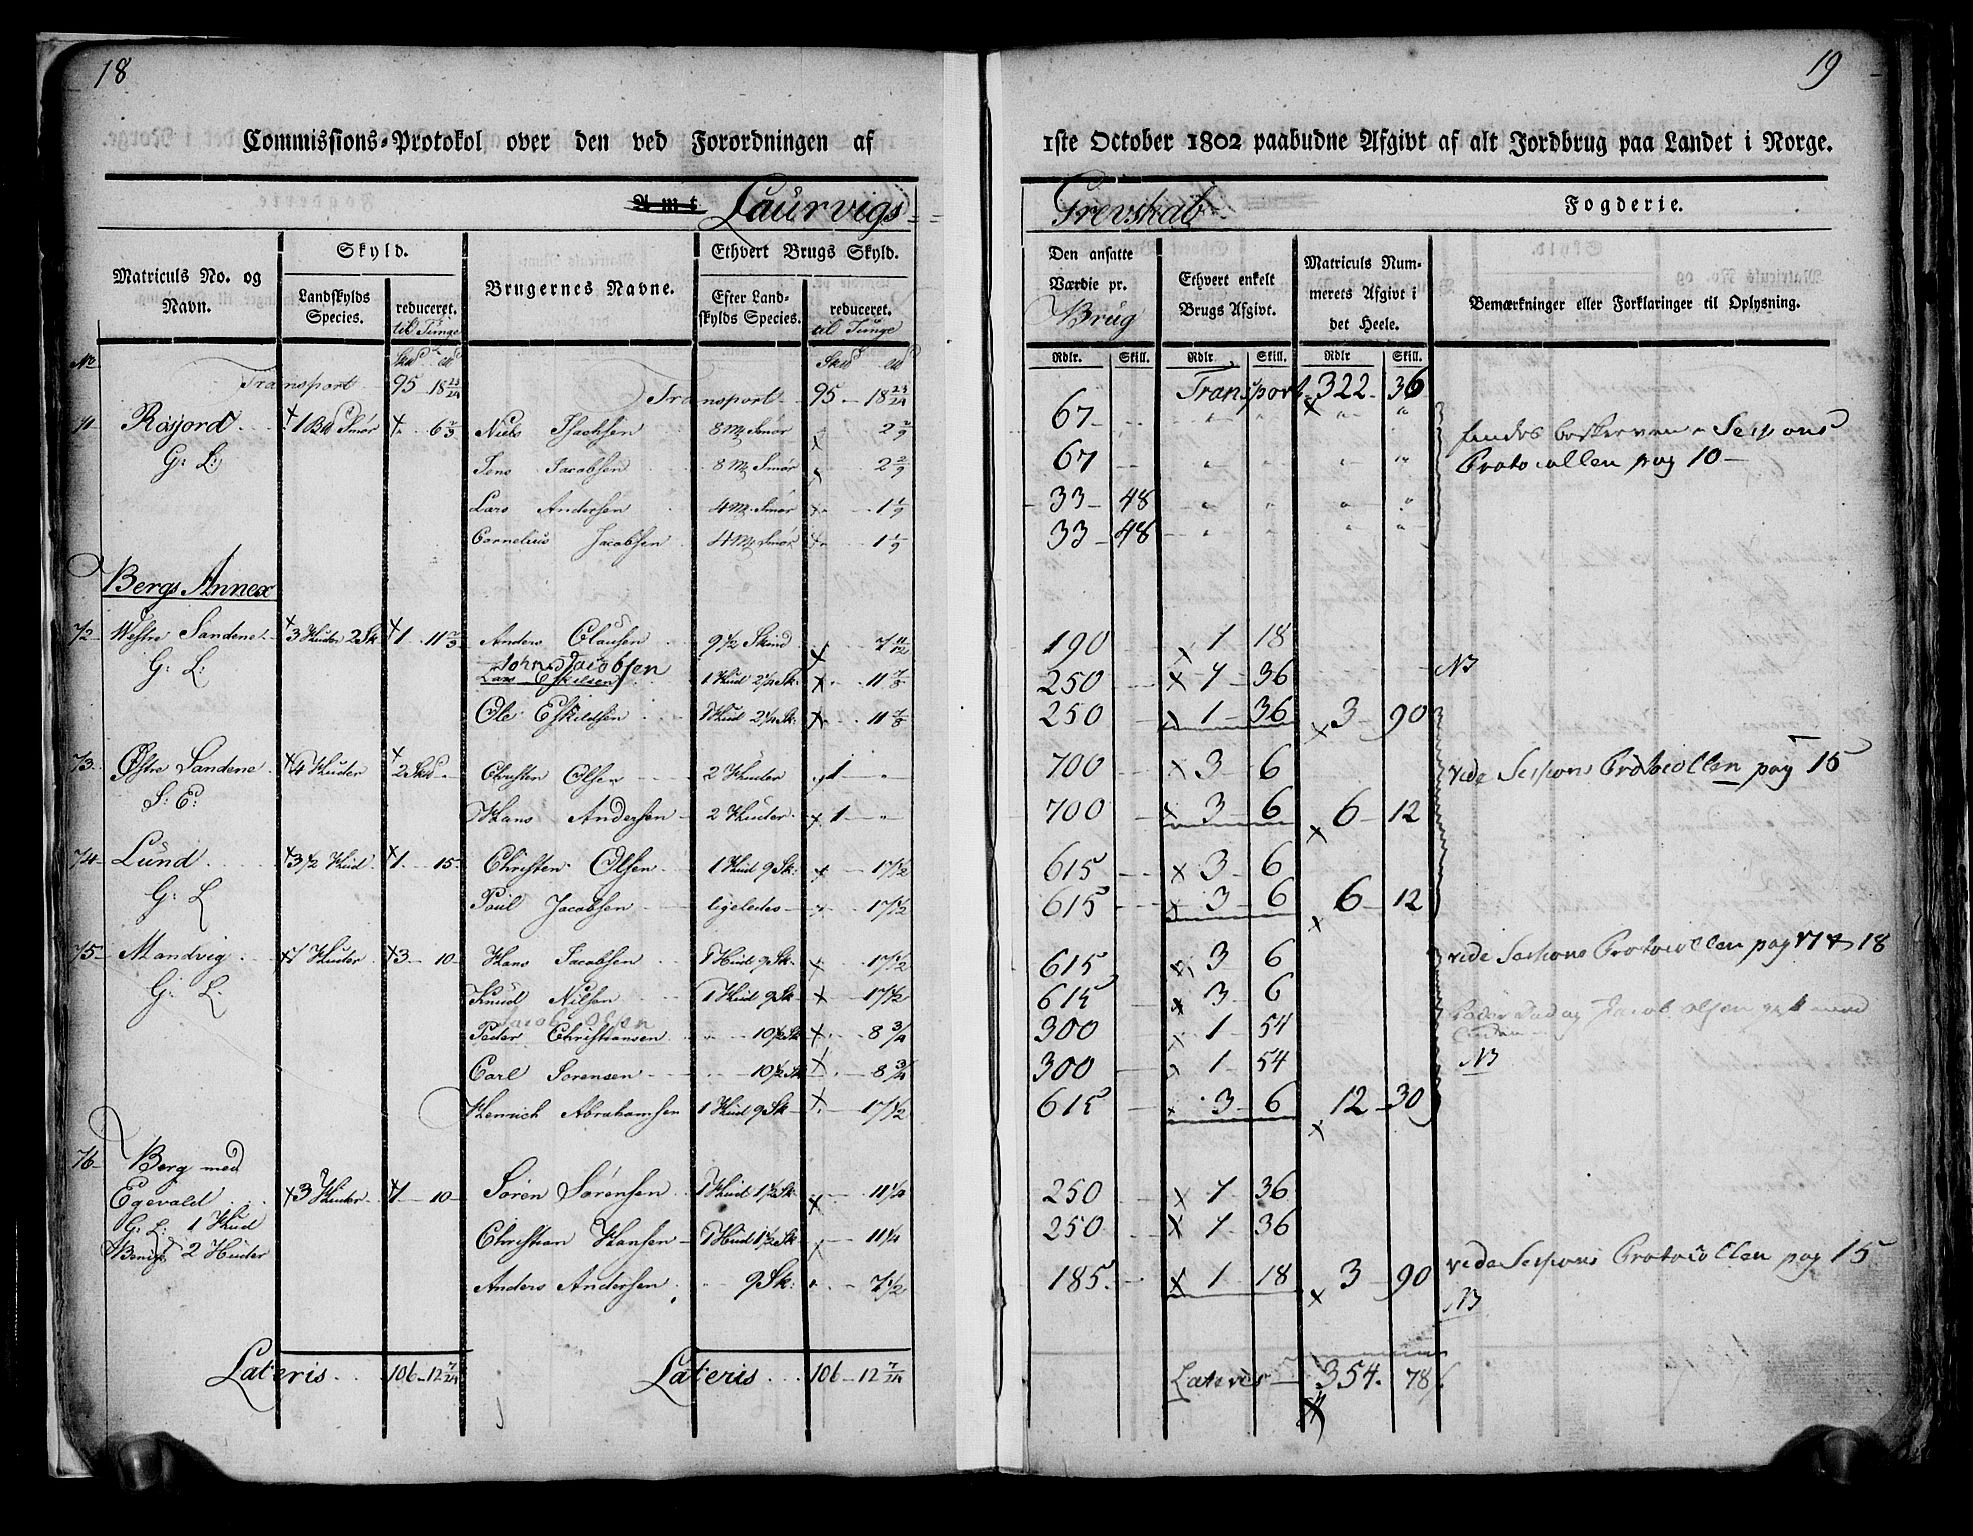 18
Commissions-Protokol over den ved Forordningen af
Amt Laurvigs
Matriculs No. og Navn.
Skyld.
Landskylds Species.
reduceret. til Tunge
Brugernes Navne.
Ethvert Brugs Skyld.
Efter Landskylds Species.
reduceret. til Tunge
No
Transport 95 - 18 23/24 Transport 95 - 18 23/24
71 Rosjord 1 Bd Smør 6 2/3 Niels Isachsen 8 Mk Smør 2 2/9
G: L: Jens Jacobsen 8 Mk Smør 2 2/9
Lars Andersen 4 Mk Smør 1 1/9
Cornelius Jacobsen 4 Mk Smør 1 1/9
Bergs Annex
72 Westre Sandene 3 Huder 2 Sk 1 - 11 2/3 Anders Clausen 9 1/2 Skind 7 11/12
G: L: John Jacobsen
Lars Eskelsen 1 Hud 2 1/4 Sk. 11 7/8
Ole Eskildsen 1 Hud 2 1/4 Sk. 11 7/8
73 Østre Sandene 4 Huder 2 Skd Christen Olsen 2 Huder 1 -
S: E: Hans Andersen 2 Huder 1 -
74 Lund 3 1/2 Hud 1 - 15 Christen Olsen 1 Hud 9 Sk. 17 1/2
G: L Paul Jacobsen ligeledes 17 1/2
75 Mandvig 7 Huder 3 - 10 Hans Jacobsen 1 Hud 9 Sk. 17 1/2
G: L: Knud Nilsen 1 Hud 9 Sk. 17 1/2
Jacob Olsen
Peder Christiansen 10 1/2 Sk 8 3/4
Carl Sorensen 10 1/2 Sk 8 3/4
Henrich Abrahamsen 1 Hud 9 Sk 17 1/2
76 Berg med
Egevald 3 Huder 1 - 10 Søren Sørensen 1 Hud 1 1/2 Sk. 11 1/4
G: L: 1 Hud
Christian Hansen 1 Hud 1 1/2 Sk 11 1/4
2 Huder
Anders Andersen 9 Sk: 7 1/2
Lateris 106 - 12 7/24 Lateris 106 - 12 7/24
19
1ste October 1802 paabudne Afgivt af alt Jordbrug paa Landet i Norge.
Grevskab Fogderie.
Den ansatte Værdie pr. Brug
Ethvert enkelt Brugs Afgivt.
Matriculs Nummerets Afgivt i det Heele.
Bemærkninger eller Forklaringer til Oplysning.
Rdlr. Skill. Rdlr. Skill. Rdlr Skill.
Transport 322 - 36
67
67 Protocollen pag 10
33 - 48
33 - 48
190 1 18
250 1 - 36 NB
250 1 - 36 3 - 90
700 3 - 6 vide Sessions Protocollen pag 15
700 3 - 6 6 - 12
615 3 - 6
615 3 - 6 6 - 12
615 3 6 vide Sessions Protocollen pag 17 & 18
615 3 - 6
300 1 - 54
300 1 - 54 NB
615 3 - 6 12 - 30
250 1 - 36
250 1 - 36
185 1 - 18 3 - 90 vide Sessions Protocollen pag 15
NB
Lateris 354. 78